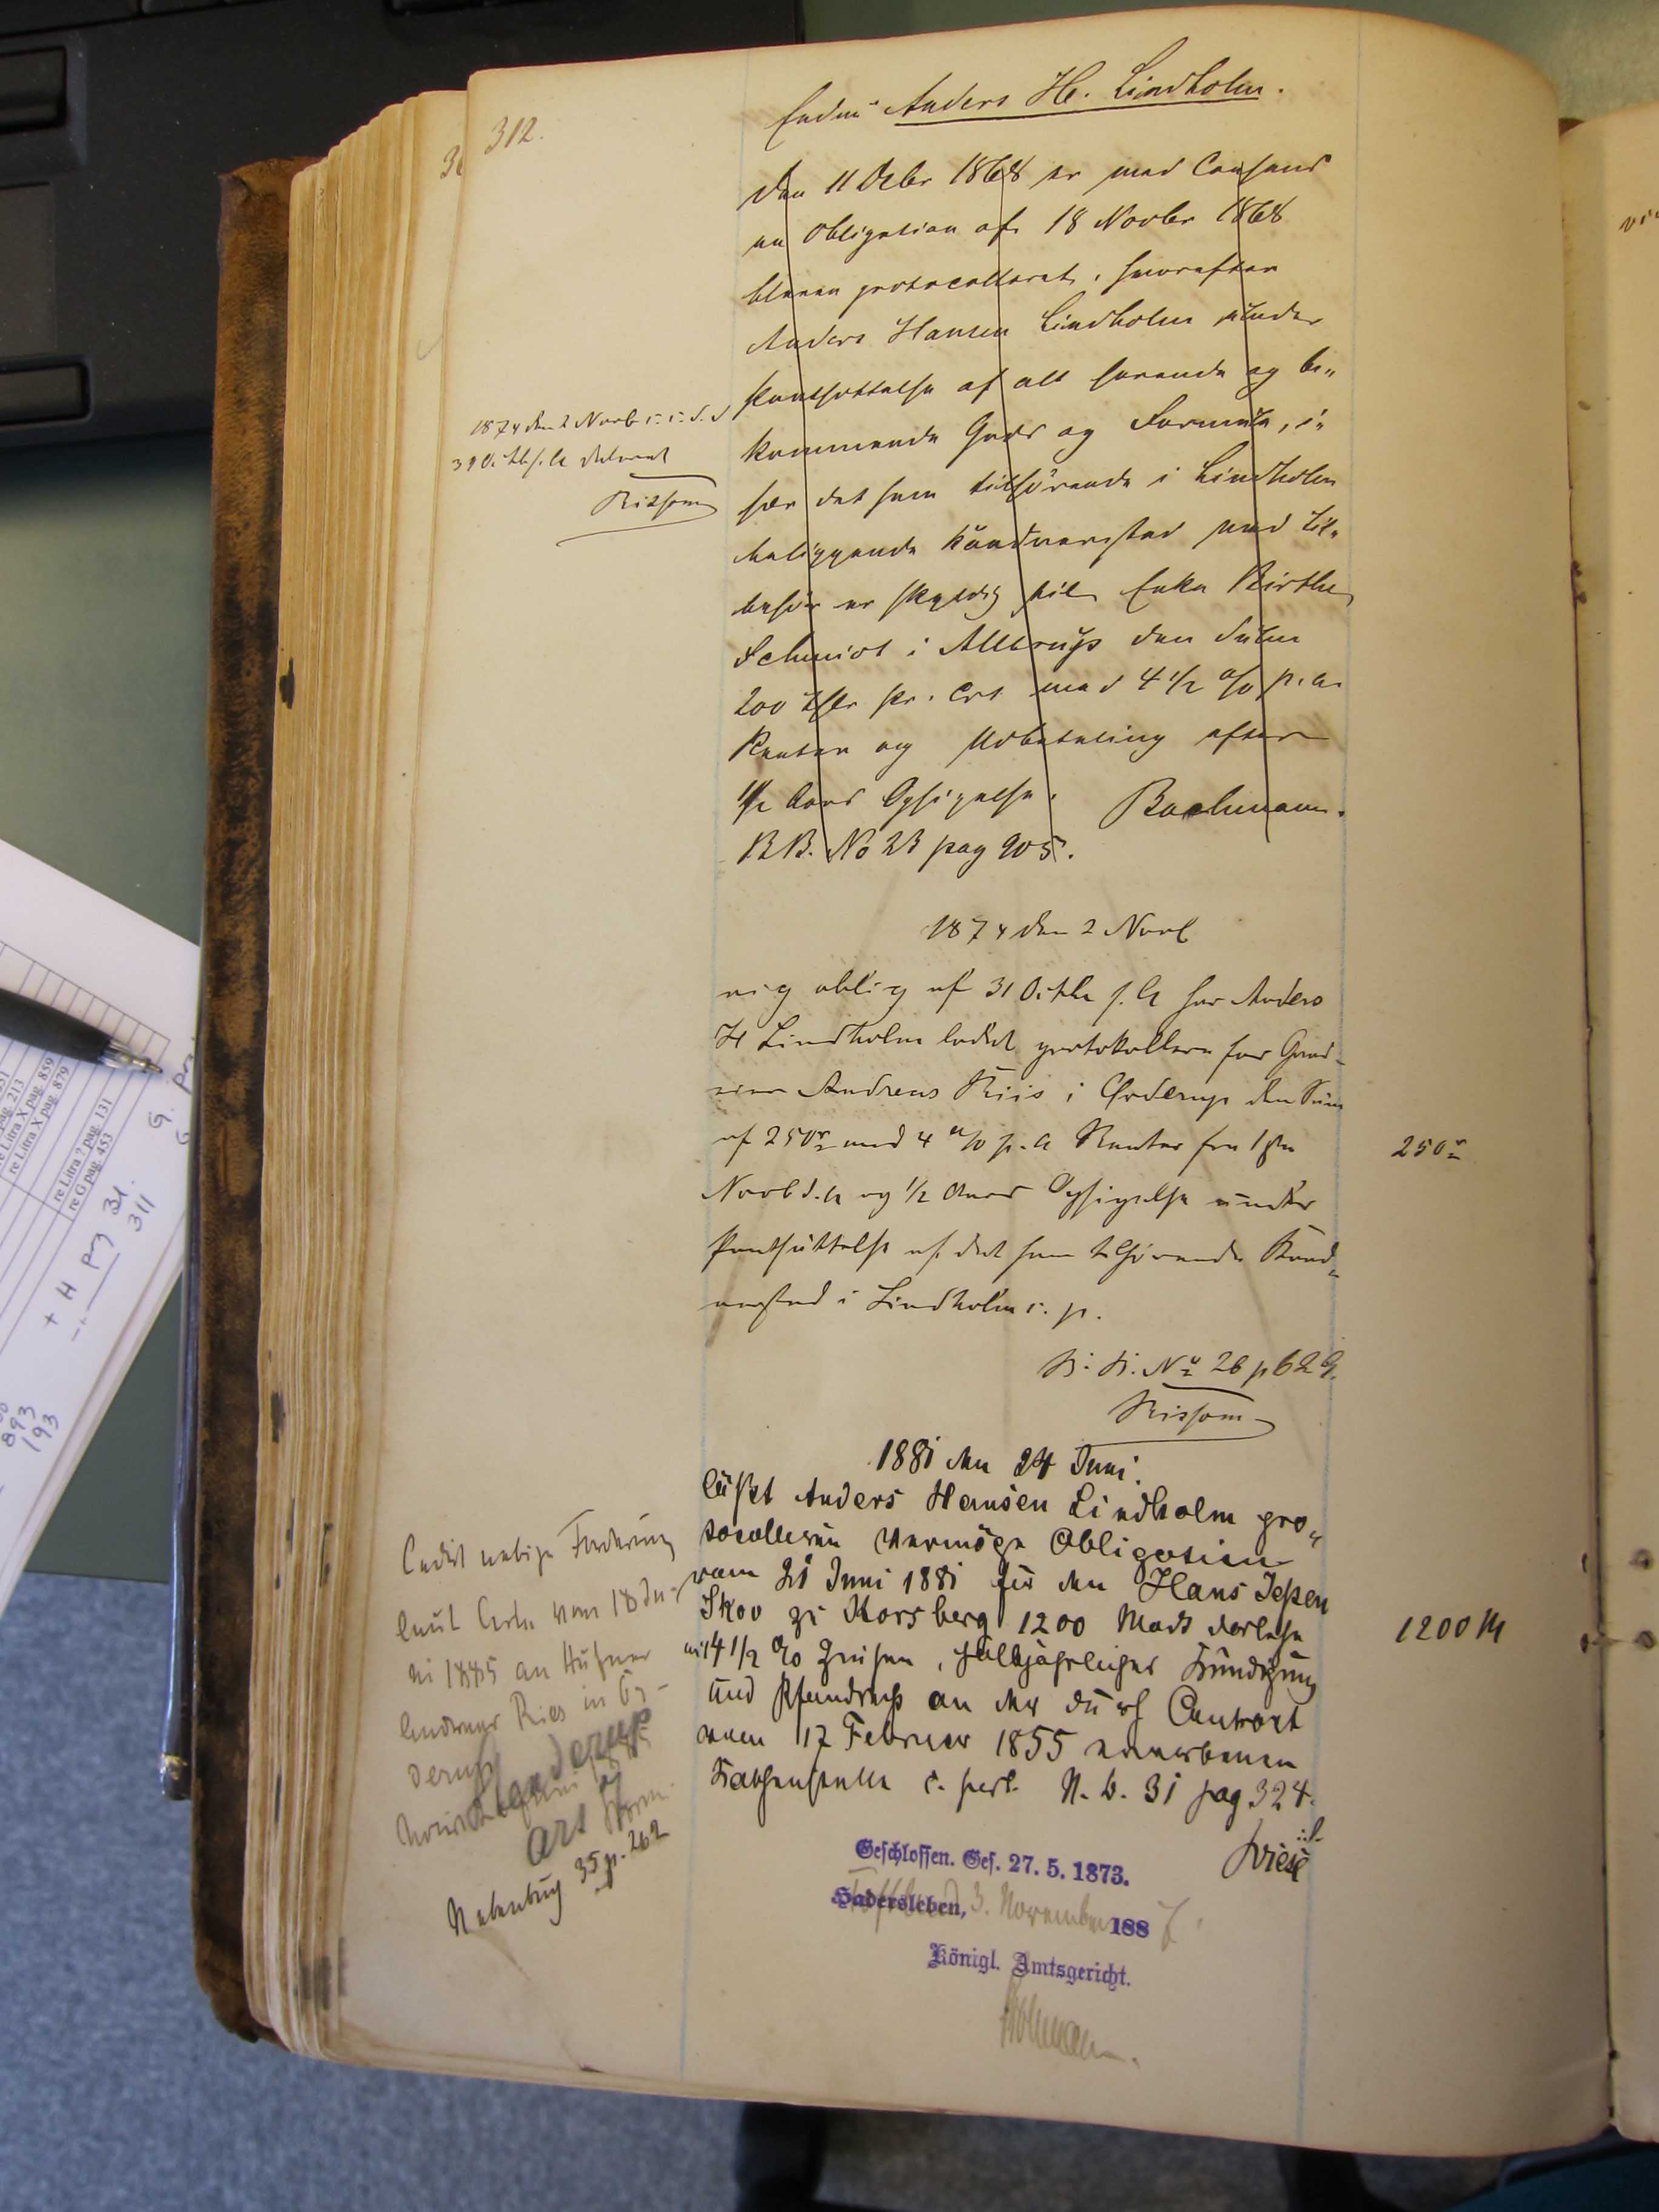 312.
Anders H. Lindholm.
Den 11 Decbr 1868 er med Consens
en Obligation af 18 Novbr 1868
bleven protocolleret, hvorefter
Anders Hansen Lindholm under
Pantsættelse af alt havende og be„
kommende Gods og Formue, i„
sær det ham tilhørende i Lindholm
beliggende Kaadnersted med til„
behør er skyldig til Enke Birthe
Schmidt i Allerup den Sum
200 Pr. Crt med 4 1/2 % p. a.
Renter og Udbetaling efter
1/2 Aars Opsigelse. Bachmann.
B.B. No 23 pag 905.
1874 den 2 Novb
Rissom
1874 den 2 Novb
oblig af 31 Octbr har Anders
H Lindholm ladet protokollere for Gaard-
Andreas Riis i Ørderup den Sum
af 250 med 4 % p. a Renter fra 1ste
Novb d. A og 1/2 Aars Opsigelse under
Pantsættelse af det ham tilhørende Kaad„
nersted i Lindholm c. p.
250
B. B. No 26 p 629.
Rissom
1881 den 24 Juni.
läßt Anders Hansen Lindholm pro„
tocolliren vermöge Obligation
vom 21 Juni 1881 für den Hans Jepsen
Skov zu Korsberg 1200 Mark Darlehn
mit 4 1/2 % Zinsen, halbjähriger Kündigung
und Pfandrecht an der durch Contract
vom 17 Februar 1855 erworbenen
Kathenstelle c. pert. N. b. 31 pag 324.
1200 M
Wiese
Cedirt nebige Forderung
laut Acte vom 18 Ju-
ni 1885 an Hufner
Andreas Ries in Ör-
derup
Nebenbuch 35 p. 262
Geschlossen. Ges. 27. 5. 1873.
Hadersleben, 3. November 1887.
Königl. Amtsgericht.
re Litra X pag. 859
re Litra X pag. 879
re Litra ? pag. 131
re G pag. 453
311
893
193